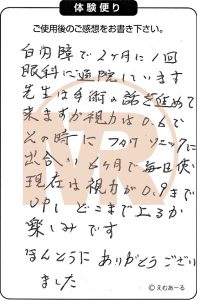 体験便り
ご使用後のご感想をお書き下さい。
白内障で2ヶ月に1回
眼科に通院しています
先生は手術の話を進めて
来ますが視力は0.6で
その時にフタワソニックに
出合い 6ヶ月で毎日使い
現在は視力が0.9まで
UPし どこまで上るか
楽しみです
ほんとうに ありがとうござい
ました
MR
©えむあーる